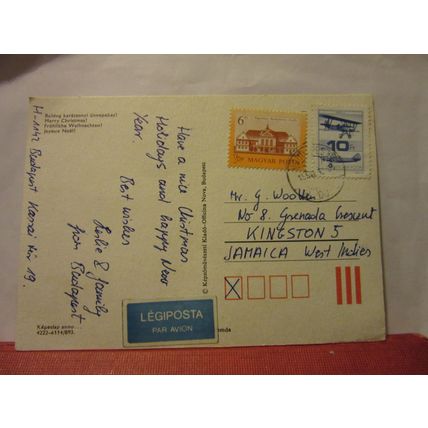 Boldog karácsonyi ünnepeket!
Merry Christmas!
Fröhliche Weihnachten!
Joyeux Noël!
H-1142 Budapest Kassai tér 19.
Have a nice Christmas
Holidays and happy New
Year.
Best wishes
Leslie & family
from Budapest
Képeslap anno...
4222-4114/893.
© Képzőművészeti Kiadó-Officina Nova, Budapest
LÉGIPOSTA
PAR AVION
6
MAGYAR POSTA
10
Mr. G. Wooller
No 8. Grenada Crescent
KINGSTON 5
JAMAICA West Indies
X